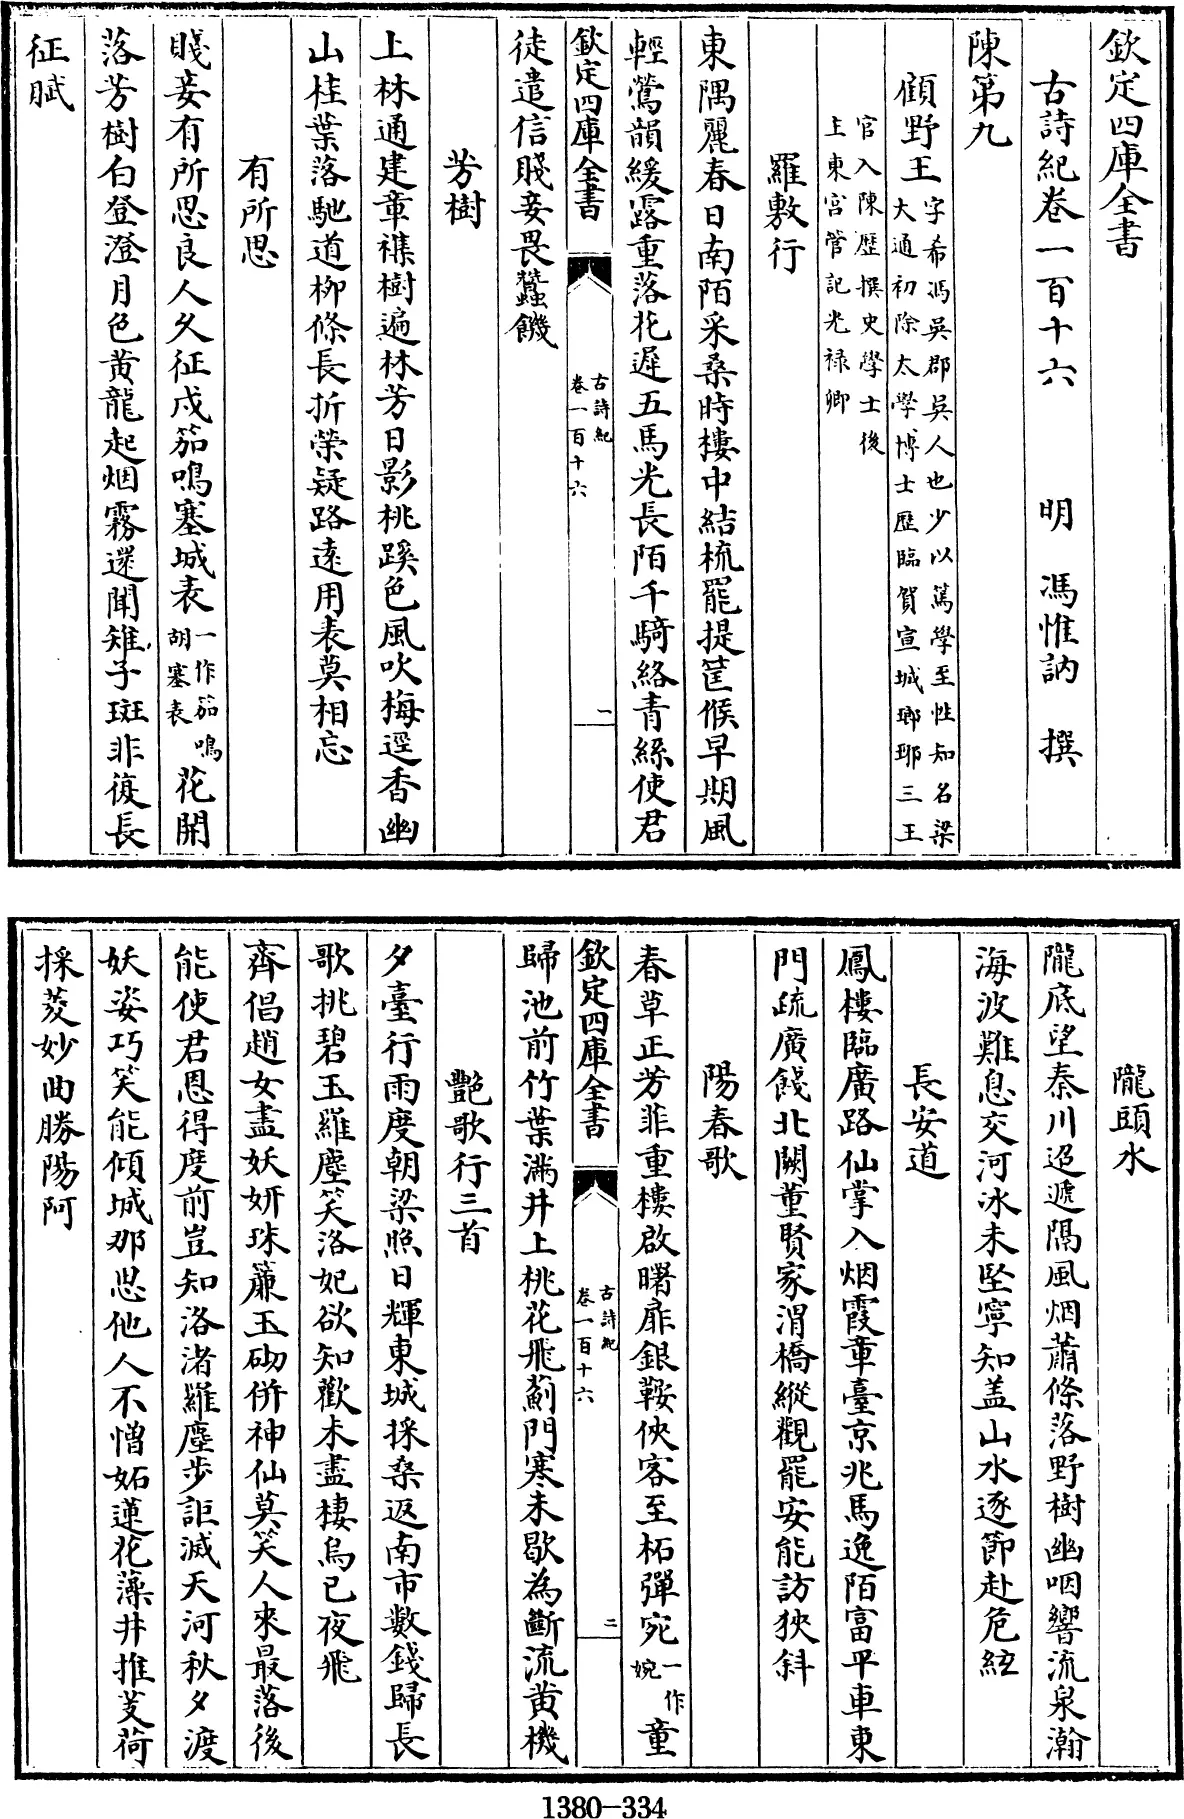 欽定四庫全書
古詩紀卷一百十六 明 馮惟訥 撰
陳第九
顧野王字希馮吳郡吳人也少以篤學至性知名梁
大通初除太學博士歷臨賀宣城瑯琊三王
官入陳歴撰史學士後
主東宮管記光禄卿
羅敷行
東隅麗春日南陌采桑時樓中結梳罷提筐候早期風
輕鶯韻緩露重落花遲五馬光長陌千騎絡青絲使君
欽定四庫全書
古詩紀
卷一百十六
一
徒遣信賤妾畏蠶饑
芳樹
上林通建章襍樹遍林芳日影桃蹊色風吹梅逕香幽
山桂葉落馳道柳條長折榮疑路遠用表莫相忘
有所思
賤妾有所思良人久征戍笳鳴塞城表一作笳鳴胡塞表花開
落芳樹白登澄月色黄龍起烟霧還聞雉子斑非復長
征賦
隴頭水
隴底望秦川迢遞隔風烟蕭條落野樹幽咽響流泉瀚
海波難息交河冰未堅寧知盖山水逐節赴危絃
長安道
鳳樓臨廣路仙掌入烟霞章臺京兆馬逸陌富平車東
門疏廣餞北闕董賢家渭橋縱觀罷安能訪狹斜
陽春歌
春草正芳菲重樓啟曙扉銀鞍俠客至柘彈宛一作婉童
欽定四庫全書
古詩紀
卷一百十六
二
歸池前竹葉滿井上桃花飛薊門寒未歇為斷流黄機
艷歌行三首
夕臺行雨度朝梁照日輝東城採桑返南市數錢歸長
歌挑碧玉羅塵笑洛妃欲知歡未盡棲烏已夜飛
齊倡趙女盡妖妍珠簾玉砌併神仙莫笑人來最落後
能使君恩得度前豈知洛渚羅塵步詎滅天河秋夕渡
妖姿巧笑能傾城那思他人不憎妬蓮花藻井推芰荷
採菱妙曲勝陽阿
1380-334